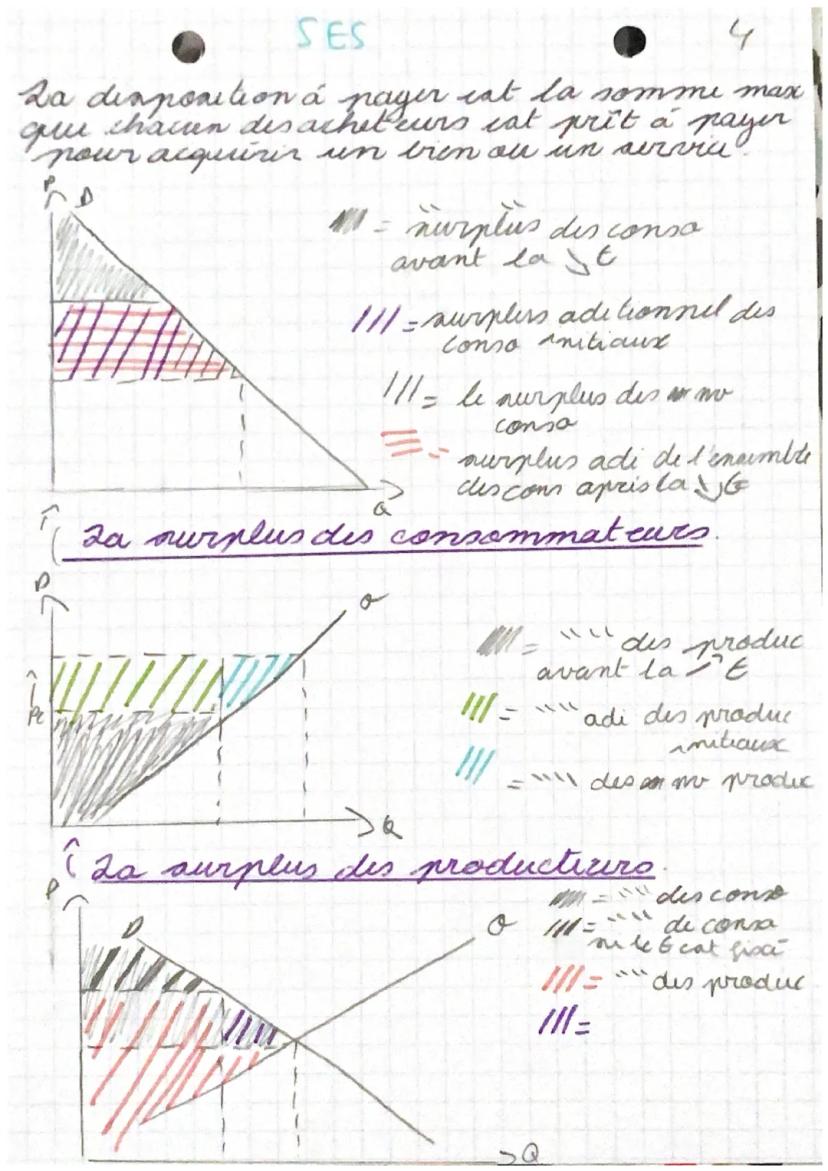 SES 4
La disposition à payer est la somme max
que chacun des acheteurs est prêt à payer
pour acquérir un bien ou un service.
P
D
= surplus des conso
avant la ↘ €
= surplus aditionnel des
conso initiaux
= le surplus des nv
conso
= surplus adi de l'ensemble
des cons après la ↘ €
Q
La surplus des consommateurs.
P
O
= " " des produc
avant la ↗ €
= " " adi des produc
initiaux
= " " des nv produc
Q
La surplus des producteurs.
P
D
O
= " " des conso
= " " de conso
si le € est fixé
= " " des produc
=
Q